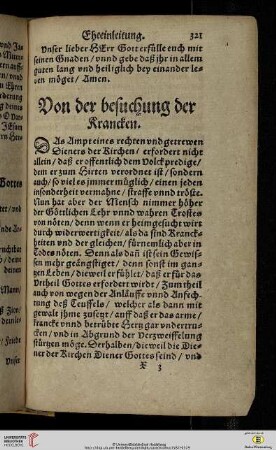 Eheeinleitung. 321
Vnser lieber HErr Gott erfülle euch mit
seinen Gnaden / vnnd gebe daß jhr in allem
guten lang vnd heiliglich bey einander le-
ben möget / Amen.
Von der besuchung der
Krancken.
DAs Ampt eines rechten vnd getrewen
Dieners der Kirchen / erfordert nicht
allein / daß er offentlich dem Volck predige /
dem er zum Hirten verordnet ist / sondern
auch / so viel es jmmer müglich / einen jeden
jnsonderheit vermahne / straffe vnnd tröste.
Nun hat aber der Mensch nimmer höher
der Göttlichen Lehr vnnd wahren Trostes
von nöten / denn wenn er heimgesucht wirt
durch widerwertigkeit / als da sind Kranck-
heiten vnd der gleichen / fürnemlich aber in
Todes nöten. Dennals dañ ist sein Gewis-
sen mehr geängstiget / denn sonst im gan-
tzen Leben / dieweil er fühlet / daß er für das
Vrtheil Gottes erfordert wird / Zum theil
auch von wegen der Anläuffe vnnd Anfech-
tung deß Teuffels / welcher als dann mit
gewalt jhme zusetzt / auff daß er das arme /
krancke vnnd betrübte Hertz gar vndertru-
cken / vnd in Abgrund der Verzweiffelung
stürtzen möge. Derhalben / dieweil die Die-
ner der Kirchen Diener Gottes seind / vnd
X 3